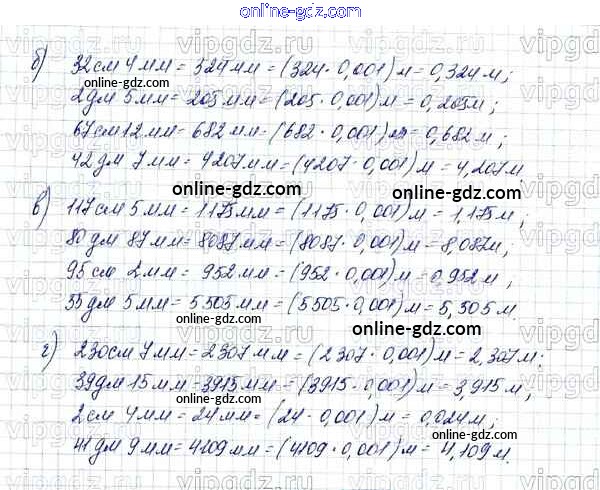 online-gdz.com
б) 32см 4мм = 324мм = (324 · 0,001)м = 0,324м;
2дм 5мм = 205мм = (205 · 0,001)м = 0,205м;
67см 12мм = 682мм = (682 · 0,001)м = 0,682м;
42дм 7мм = 4207мм = (4207 · 0,001)м = 4,207м
online-gdz.com online-gdz.com
в) 117см 5мм = 1175мм = (1175 · 0,001)м = 1,175м;
80дм 87мм = 8087мм = (8087 · 0,001)м = 8,087м;
95см 2мм = 952мм = (952 · 0,001)м = 0,952м;
55дм 5мм = 5505мм = (5505 · 0,001)м = 5,505м.
online-gdz.com
г) 230см 7мм = 2307мм = (2307 · 0,001)м = 2,307м;
39дм 15мм = 3915мм = (3915 · 0,001)м = 3,915м;
2см 4мм = 24мм = (24 · 0,001)м = 0,024м;
41дм 9мм = 4109мм = (4109 · 0,001)м = 4,109м.
online-gdz.com
online-gdz.com